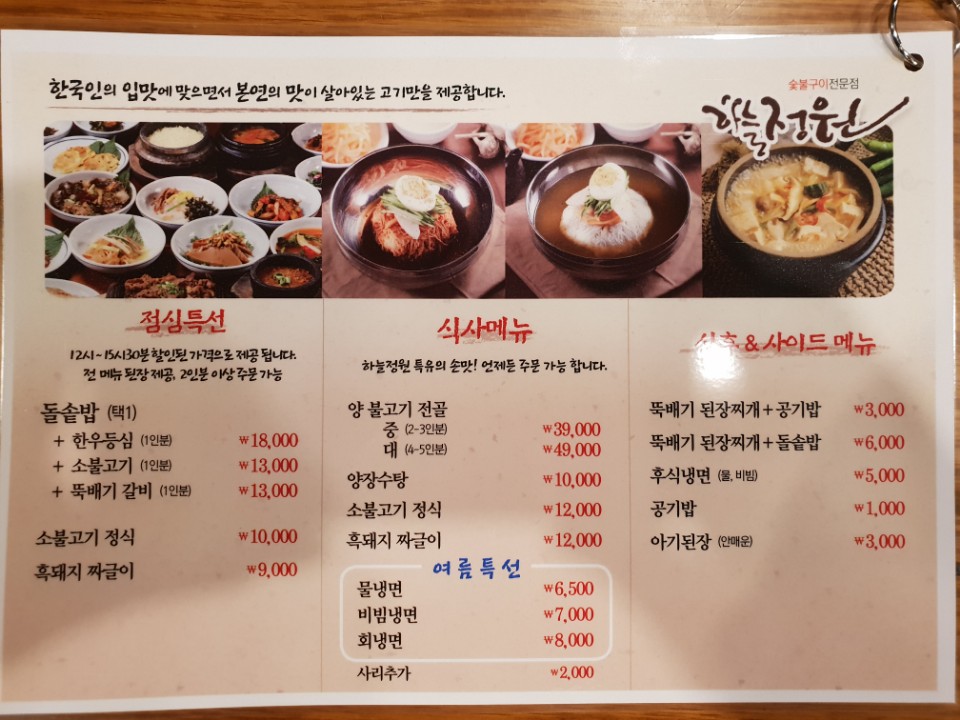 한국인의 입맛에 맞으면서 본연의 맛이 살아있는 고기만을 제공합니다.
숯불구이전문점
하늘정원
점심특선
12시~15시30분 할인된 가격으로 제공 됩니다.
전 메뉴 된장 제공, 2인분 이상 주문 가능
돌솥밥 (택1)
+ 한우등심 (1인분) ₩18,000
+ 소불고기 (1인분) ₩13,000
+ 뚝배기 갈비 (1인분) ₩13,000
소불고기 정식 ₩10,000
흑돼지 짜글이 ₩9,000
식사메뉴
하늘정원 특유의 손맛! 언제든 주문 가능 합니다.
양 불고기 전골
중 (2-3인분) ₩39,000
대 (4-5인분) ₩49,000
양장수탕 ₩10,000
소불고기 정식 ₩12,000
흑돼지 짜글이 ₩12,000
여름특선
물냉면 ₩6,500
비빔냉면 ₩7,000
회냉면 ₩8,000
사리추가 ₩2,000
& 사이드 메뉴
뚝배기 된장찌개 + 공기밥 ₩3,000
뚝배기 된장찌개 + 돌솥밥 ₩6,000
후식냉면 (물, 비빔) ₩5,000
공기밥 ₩1,000
아기된장 (안매운) ₩3,000